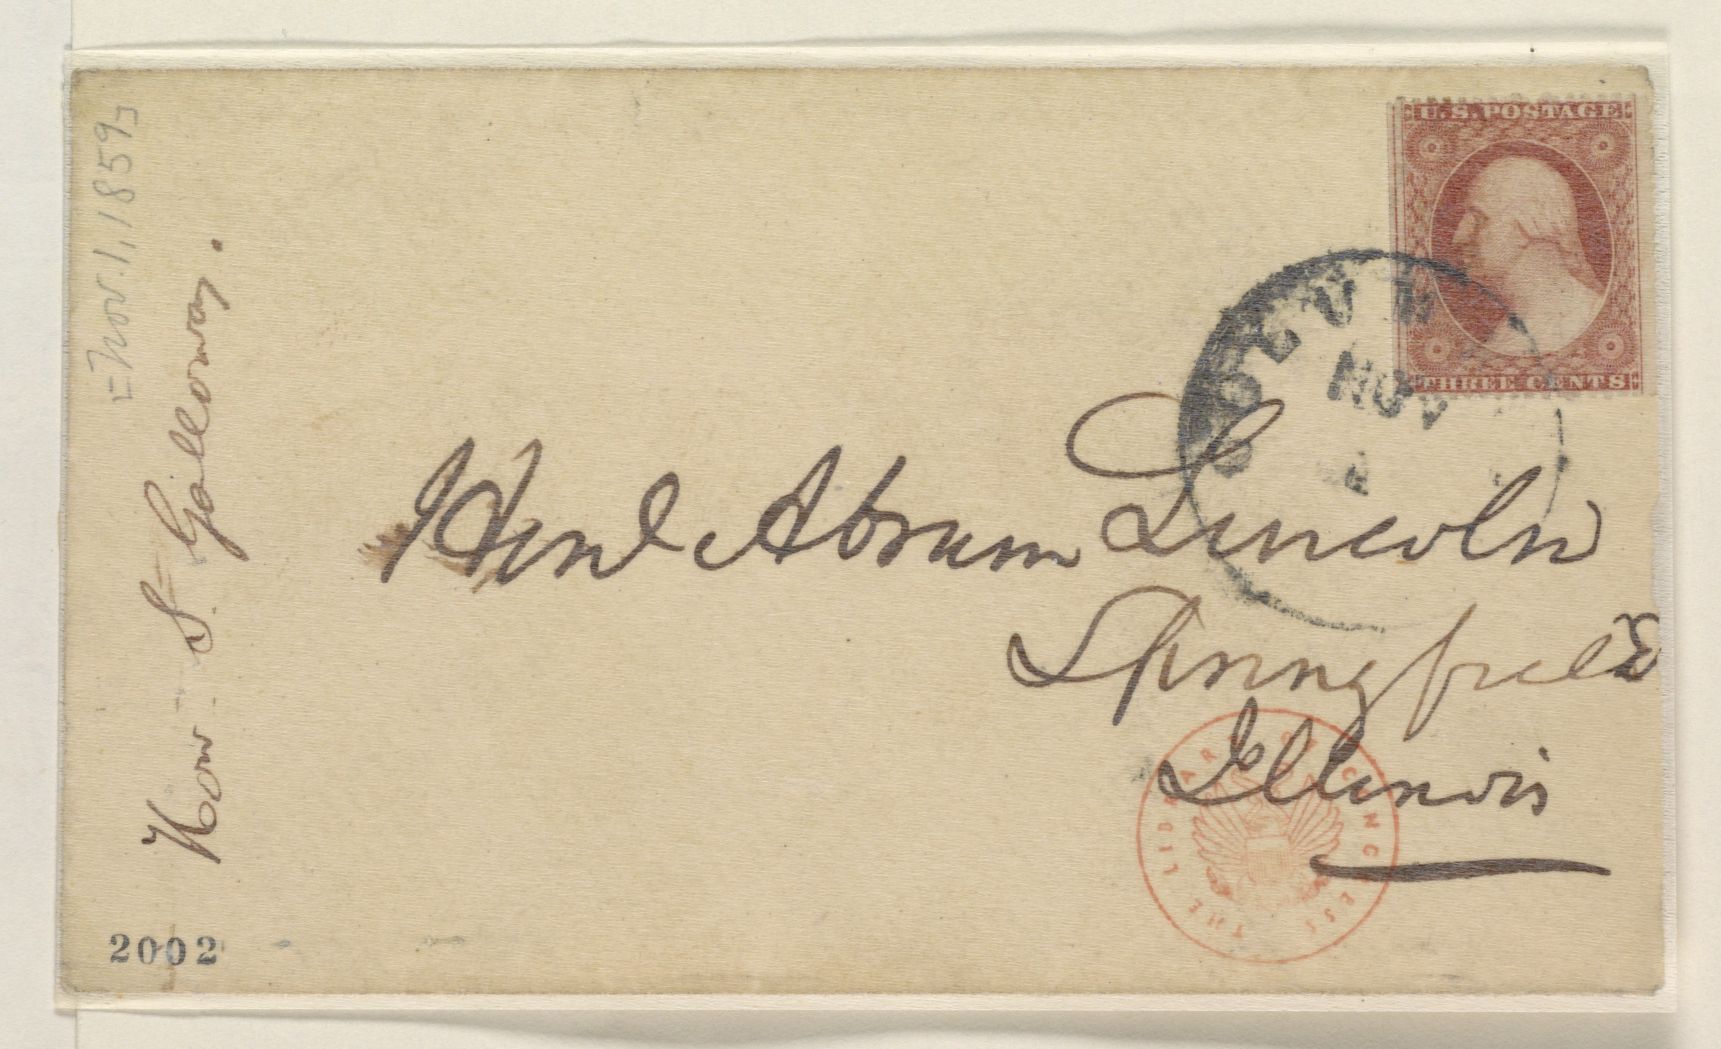 U.S. POSTAGE
THREE CENTS
COLUM
NOV
1
Honl Abram Lincoln
Springfield
Illinois
Hon S. Galloway.
=Nov. 1, 1859
THE LIBRARY OF CONGRESS
2002